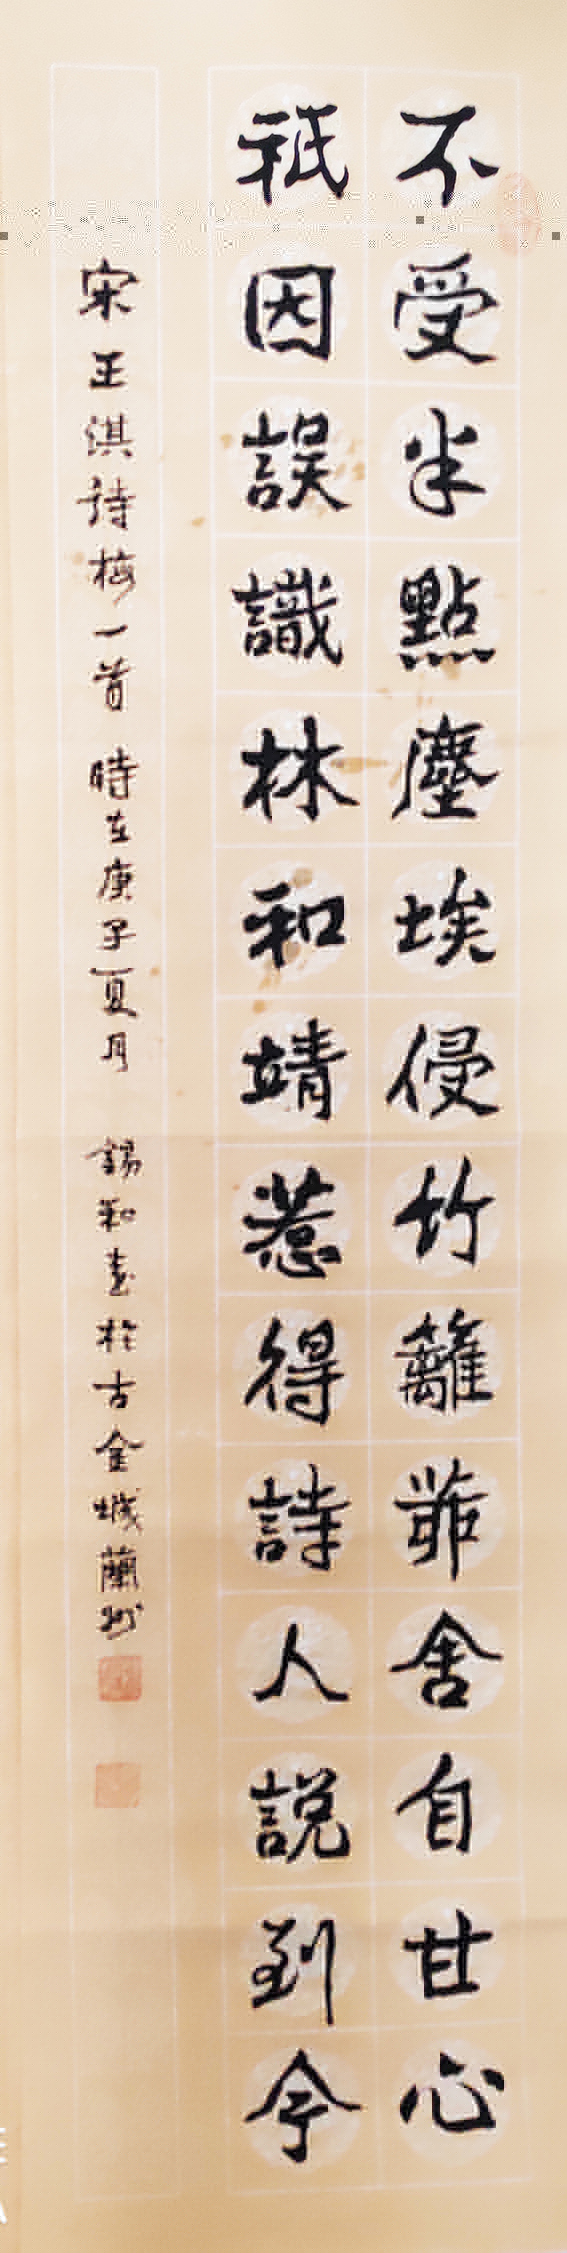 不受半點塵埃侵竹籬茆舍自甘心
祇因誤識林和靖惹得詩人說到今
宋王淇诗梅一首 時在庚子夏月 錫和書於古金城蘭州